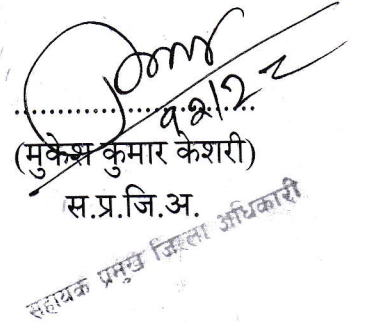 (मुकेश कुमार केशरी)
स.प्र.जि.अ.
सहायक प्रमुख जिल्ला अधिकारी